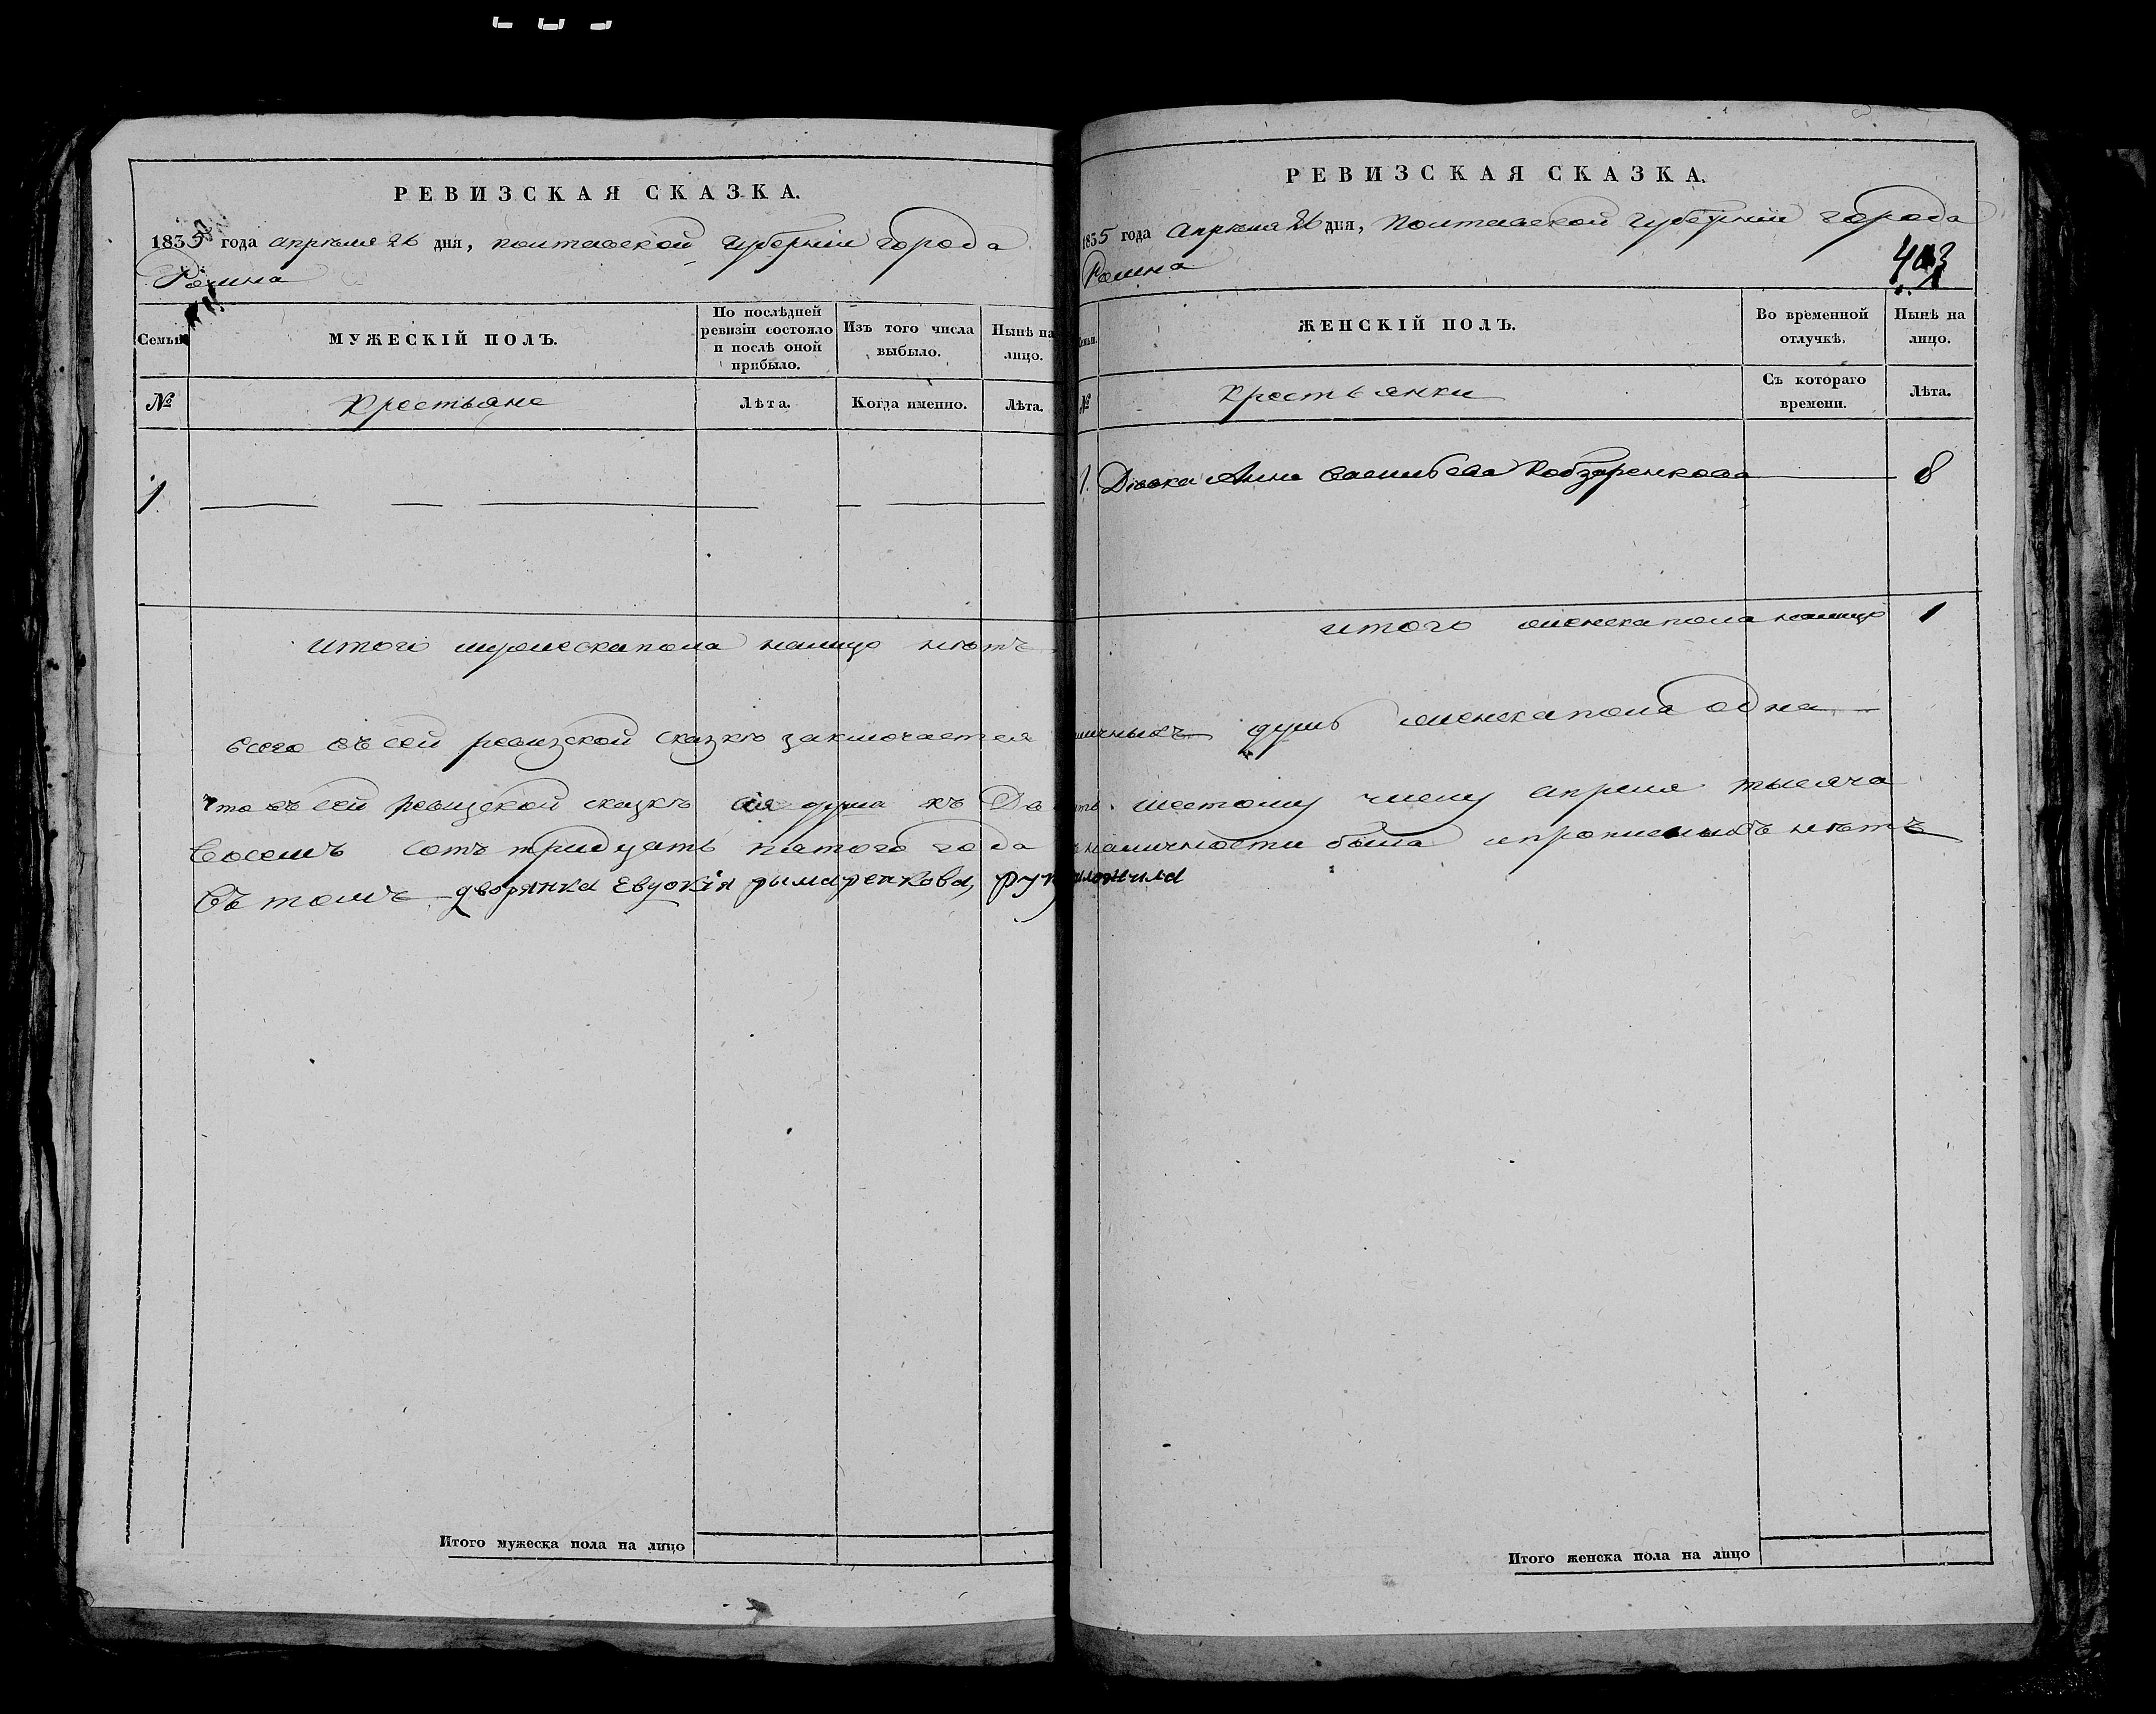 РЕВИЗСКАЯ СКАЗКА.
1835 года апреля 26 дня, Полтавской губерніи города
Ромна
Семьи
МУЖЕСКІЙ ПОЛЪ.
По послѣдней ревизіи состояло и послѣ оной прибыло.
Изъ того числа выбыло.
Ныне на лицо.
№
Крестьяне
Лѣта.
Когда именно.
Лѣта.
1
Итого мужеска пола налицо нѣтъ
Всего въ сей ревизской сказкѣ заключается
Что въ сей ревизской сказкѣ сія душа къ
Восемь сотъ тридцать пятого года
Въ томъ дворянка Евдокія рымаренкова,
РЕВИЗСКАЯ СКАЗКА.
1835 года Апреля 26 дня, Полтавской губерніи города
Ромна
403
ЖЕНСКІЙ ПОЛЪ.
Во временной отлучкѣ.
Нынѣ на лицо.
№
Крестьянки
Съ котораго времени.
Лѣта.
1. Дѣвка Анна Васильева Кобзаренкова 8
итого женска пола налицо 1
душъ женска пола одна
шестому числу апреля тысяча
наличности была и прописныхъ нѣтъ
Итого мужеска пола на лицо
Итого женска пола на лицо